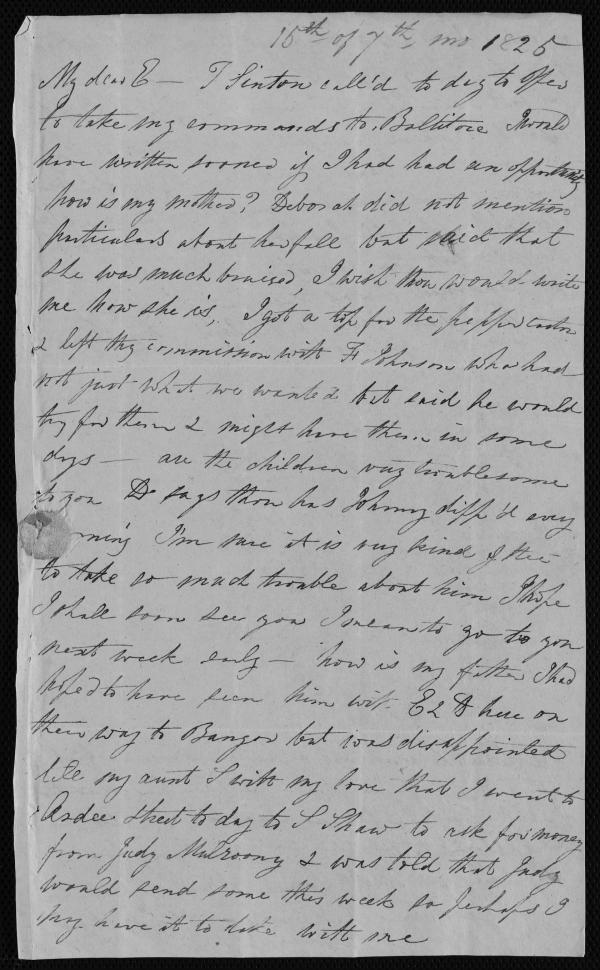 15th of 7th mo 1825
My dear E — T Sinton call'd to day to offer
to take my commands to Baltitore I would
have written sooner if I had had an opportunity
how is my mother? Deborah did not mention
particulars about her fall but said that
she was much bruised, I wish thou would write
me how she is, I got a top for the pepper castor
& left thy commission with Johnson who had
not just what we wanted but said he would
try for them & might have them in some
days — are the children very troublesome
to you D says thou has Johnny dipp'd every
rning I'm sure it is very kind of thee
to take so much trouble about him I hope
I shall soon see you I mean to go to you
next week early — how is my father I had
hoped to have seen him with E & D here on
their way to Bangor but was disappointed
tell my aunt S with my love that I went to
Ardee street to day to S Shaw to ask for money
from Judy Mulroony & was told that Judy
would send some this week so perhaps I
may have it to take with me